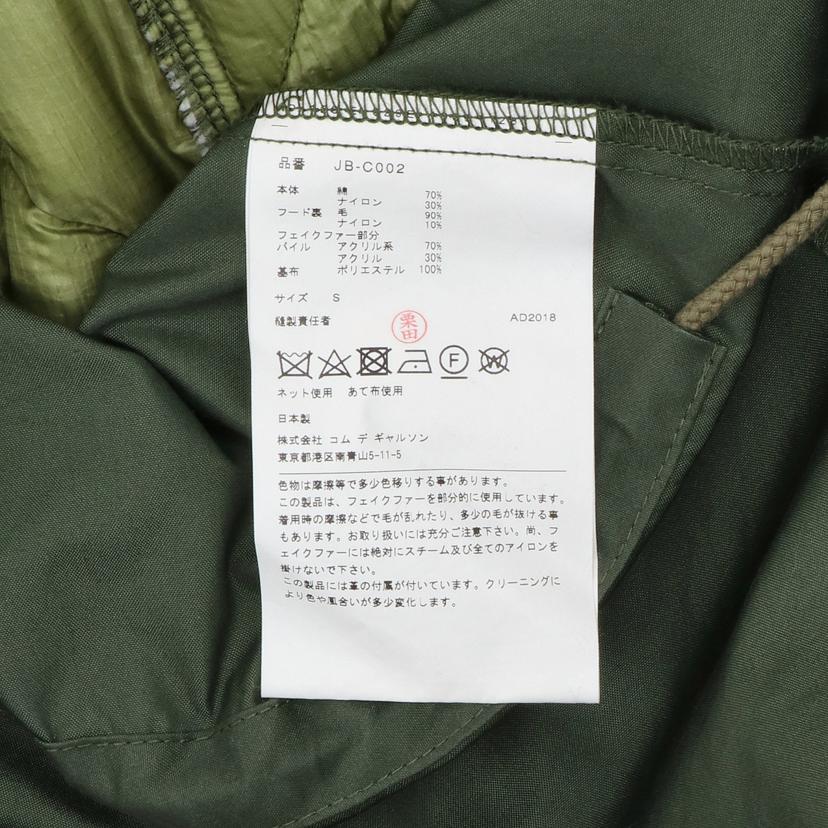 品番 JB-C002
本体 綿 70%
ナイロン 30%
フード裏 毛 90%
ナイロン 10%
フェイクファー部分
パイル アクリル系 70%
アクリル 30%
基布 ポリエステル 100%
サイズ S
縫製責任者 栗田 AD2018
F W
ネット使用 あて布使用
日本製
株式会社 コム デ ギャルソン
東京都港区南青山5-11-5
色物は摩擦等で多少色移りする事があります。
この製品は、フェイクファーを部分的に使用しています。
着用時の摩擦などで毛が乱れたり、多少の毛が抜ける事
もあります。お取り扱いには充分ご注意下さい。尚、フ
ェイクファーには絶対にスチーム及び全てのアイロンを
掛けないで下さい。
この製品には革の付属が付いています。クリーニングに
より色や風合いが多少変化します。